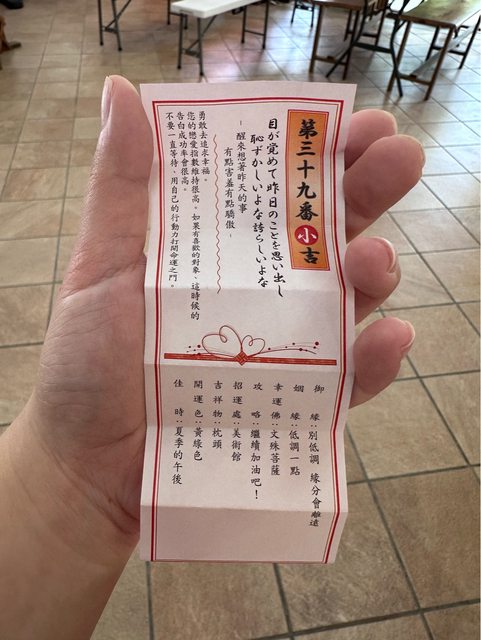 第三十九番 小吉
目が覚めて昨日のことを思い出し
恥ずかしいよな誇らしいよな
- 醒來想著昨天的事
有點害羞有點驕傲 -
勇敢去追求幸福。
您的戀愛指數維持很高。如果有喜歡的對象、這時候的
告白成功率會很高。
不要一直等待、用自己的行動力打開命運之門。
御 緣:別低調 緣分會離遠
姻 緣:低調一點
幸運佛:文殊菩薩
攻 略:繼續加油吧!
招運處:美術館
吉祥物:枕頭
開運色:黃綠色
佳 時:夏季的午後